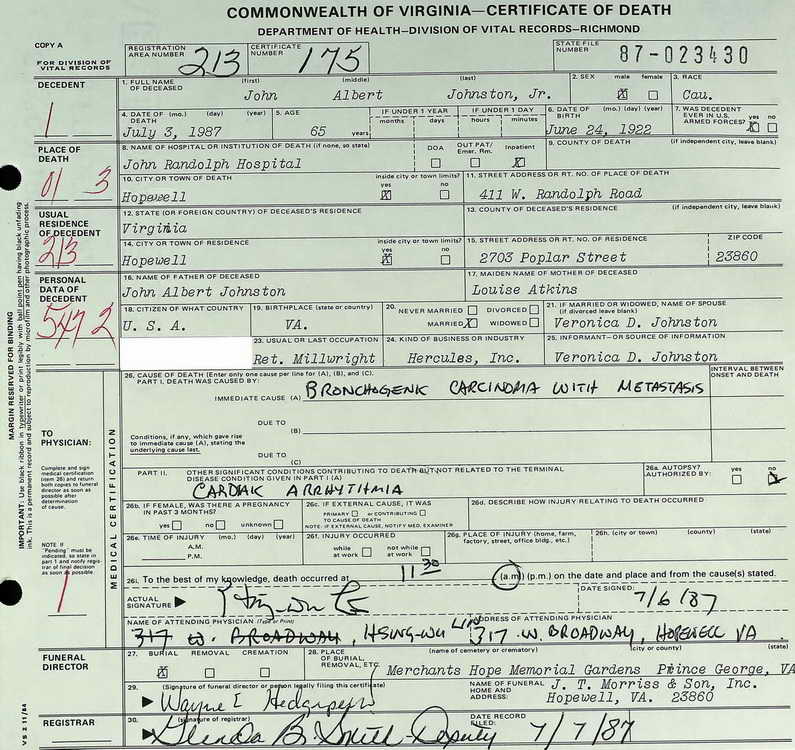 COMMONWEALTH OF VIRGINIA—CERTIFICATE OF DEATH
DEPARTMENT OF HEALTH—DIVISION OF VITAL RECORDS—RICHMOND
COPY A
FOR DIVISION OF VITAL RECORDS
REGISTRATION AREA NUMBER 213
CERTIFICATE NUMBER 175
STATE FILE NUMBER 87-023430
DECEDENT
1
1. FULL NAME OF DECEASED (first) (middle) (last)
John Albert Johnston, Jr.
2. SEX male female
X
3. RACE
Cau.
4. DATE OF DEATH (mo.) (day) (year)
July 3, 1987
5. AGE
65 years
IF UNDER 1 YEAR
months days
IF UNDER 1 DAY
hours minutes
6. DATE OF BIRTH (mo.) (day) (year)
June 24, 1922
7. WAS DECEDENT EVER IN U.S. ARMED FORCES? yes no
X
PLACE OF DEATH
01 3
8. NAME OF HOSPITAL OR INSTITUTION OF DEATH (if none, so state)
John Randolph Hospital
DOA
OUT PAT/ Emer. Rm.
Inpatient
X
9. COUNTY OF DEATH (if independent city, leave blank)
10. CITY OR TOWN OF DEATH
Hopewell
inside city or town limits?
yes no
X
11. STREET ADDRESS OR RT. NO. OF PLACE OF DEATH
411 W. Randolph Road
USUAL RESIDENCE OF DECEDENT
213
12. STATE (OR FOREIGN COUNTRY) OF DECEASED'S RESIDENCE
Virginia
13. COUNTY OF DECEASED'S RESIDENCE (if independent city, leave blank)
14. CITY OR TOWN OF RESIDENCE
Hopewell
inside city or town limits?
yes no
X
15. STREET ADDRESS OR RT. NO. OF RESIDENCE
2703 Poplar Street
ZIP CODE
23860
PERSONAL DATA OF DECEDENT
547 2
16. NAME OF FATHER OF DECEASED
John Albert Johnston
17. MAIDEN NAME OF MOTHER OF DECEASED
Louise Atkins
18. CITIZEN OF WHAT COUNTRY
U. S. A.
19. BIRTHPLACE (state or country)
VA.
20. NEVER MARRIED DIVORCED
MARRIED X WIDOWED
21. IF MARRIED OR WIDOWED, NAME OF SPOUSE (if divorced leave blank)
Veronica D. Johnston
23. USUAL OR LAST OCCUPATION
Ret. Millwright
24. KIND OF BUSINESS OR INDUSTRY
Hercules, Inc.
25. INFORMANT—OR SOURCE OF INFORMATION
Veronica D. Johnston
MARGIN RESERVED FOR BINDING
IMPORTANT: Use black ribbon in typewriter or print legibly with ball point pen having black unfading ink. This is a permanent record and subject to reproduction by microfilm and other photographic process.
TO PHYSICIAN:
Complete and sign medical certification (item 26) and return both copies to funeral director as soon as possible after determination of cause.
NOTE IF "Pending" must be indicated, so state in part 1 and notify registrar of final decision as soon as possible.
1
MEDICAL CERTIFICATION
26. CAUSE OF DEATH (Enter only one cause per line for (A), (B), and (C).
PART I. DEATH WAS CAUSED BY:
INTERVAL BETWEEN ONSET AND DEATH
IMMEDIATE CAUSE (A) BRONCHOGENIC CARCINOMA WITH METASTASIS
DUE TO
(B)
Conditions, if any, which gave rise to immediate cause (A), stating the underlying cause last.
DUE TO
(C)
PART II. OTHER SIGNIFICANT CONDITIONS CONTRIBUTING TO DEATH BUT NOT RELATED TO THE TERMINAL DISEASE CONDITION GIVEN IN PART I (A)
CARDIAK ARRHYTHMIA
26a. AUTOPSY? AUTHORIZED BY:
yes no
26b. IF FEMALE, WAS THERE A PREGNANCY IN PAST 3 MONTHS?
yes no unknown
26c. IF EXTERNAL CAUSE, IT WAS
PRIMARY or CONTRIBUTING
TO CAUSE OF DEATH
NOTE: IF EXTERNAL CAUSE, NOTIFY MED. EXAMINER
26d. DESCRIBE HOW INJURY RELATING TO DEATH OCCURRED
26e. TIME OF INJURY (mo.) (day) (year)
A.M.
P.M.
26f. INJURY OCCURRED
while at work not while at work
26g. PLACE OF INJURY (home, farm, factory, street, office bldg., etc.)
26h. (city or town) (county) (state)
26i. To the best of my knowledge, death occurred at 11 30 (a.m.) (p.m.) on the date and place and from the cause(s) stated.
ACTUAL SIGNATURE
DATE SIGNED:
7/6/87
NAME OF ATTENDING PHYSICIAN (Type or Print)
ADDRESS OF ATTENDING PHYSICIAN
317 W. BROADWAY, HSING-WU LIN 317 W. BROADWAY, HOPEWELL VA.
FUNERAL DIRECTOR
27. BURIAL REMOVAL CREMATION
X
28. PLACE OF BURIAL, REMOVAL, ETC.
(name of cemetery or crematory) (city or county) (state)
Merchants Hope Memorial Gardens Prince George, VA
29. (Signature of funeral director or person legally filing this certificate)
Wayne E Hedgepeth
NAME OF FUNERAL HOME AND ADDRESS:
J. T. Morriss & Son, Inc.
Hopewell, VA. 23860
REGISTRAR
30. (signature of registrar)
Glenda B. Smith-Deputy
DATE RECORD FILED:
7/7/87
VS 2 11/84